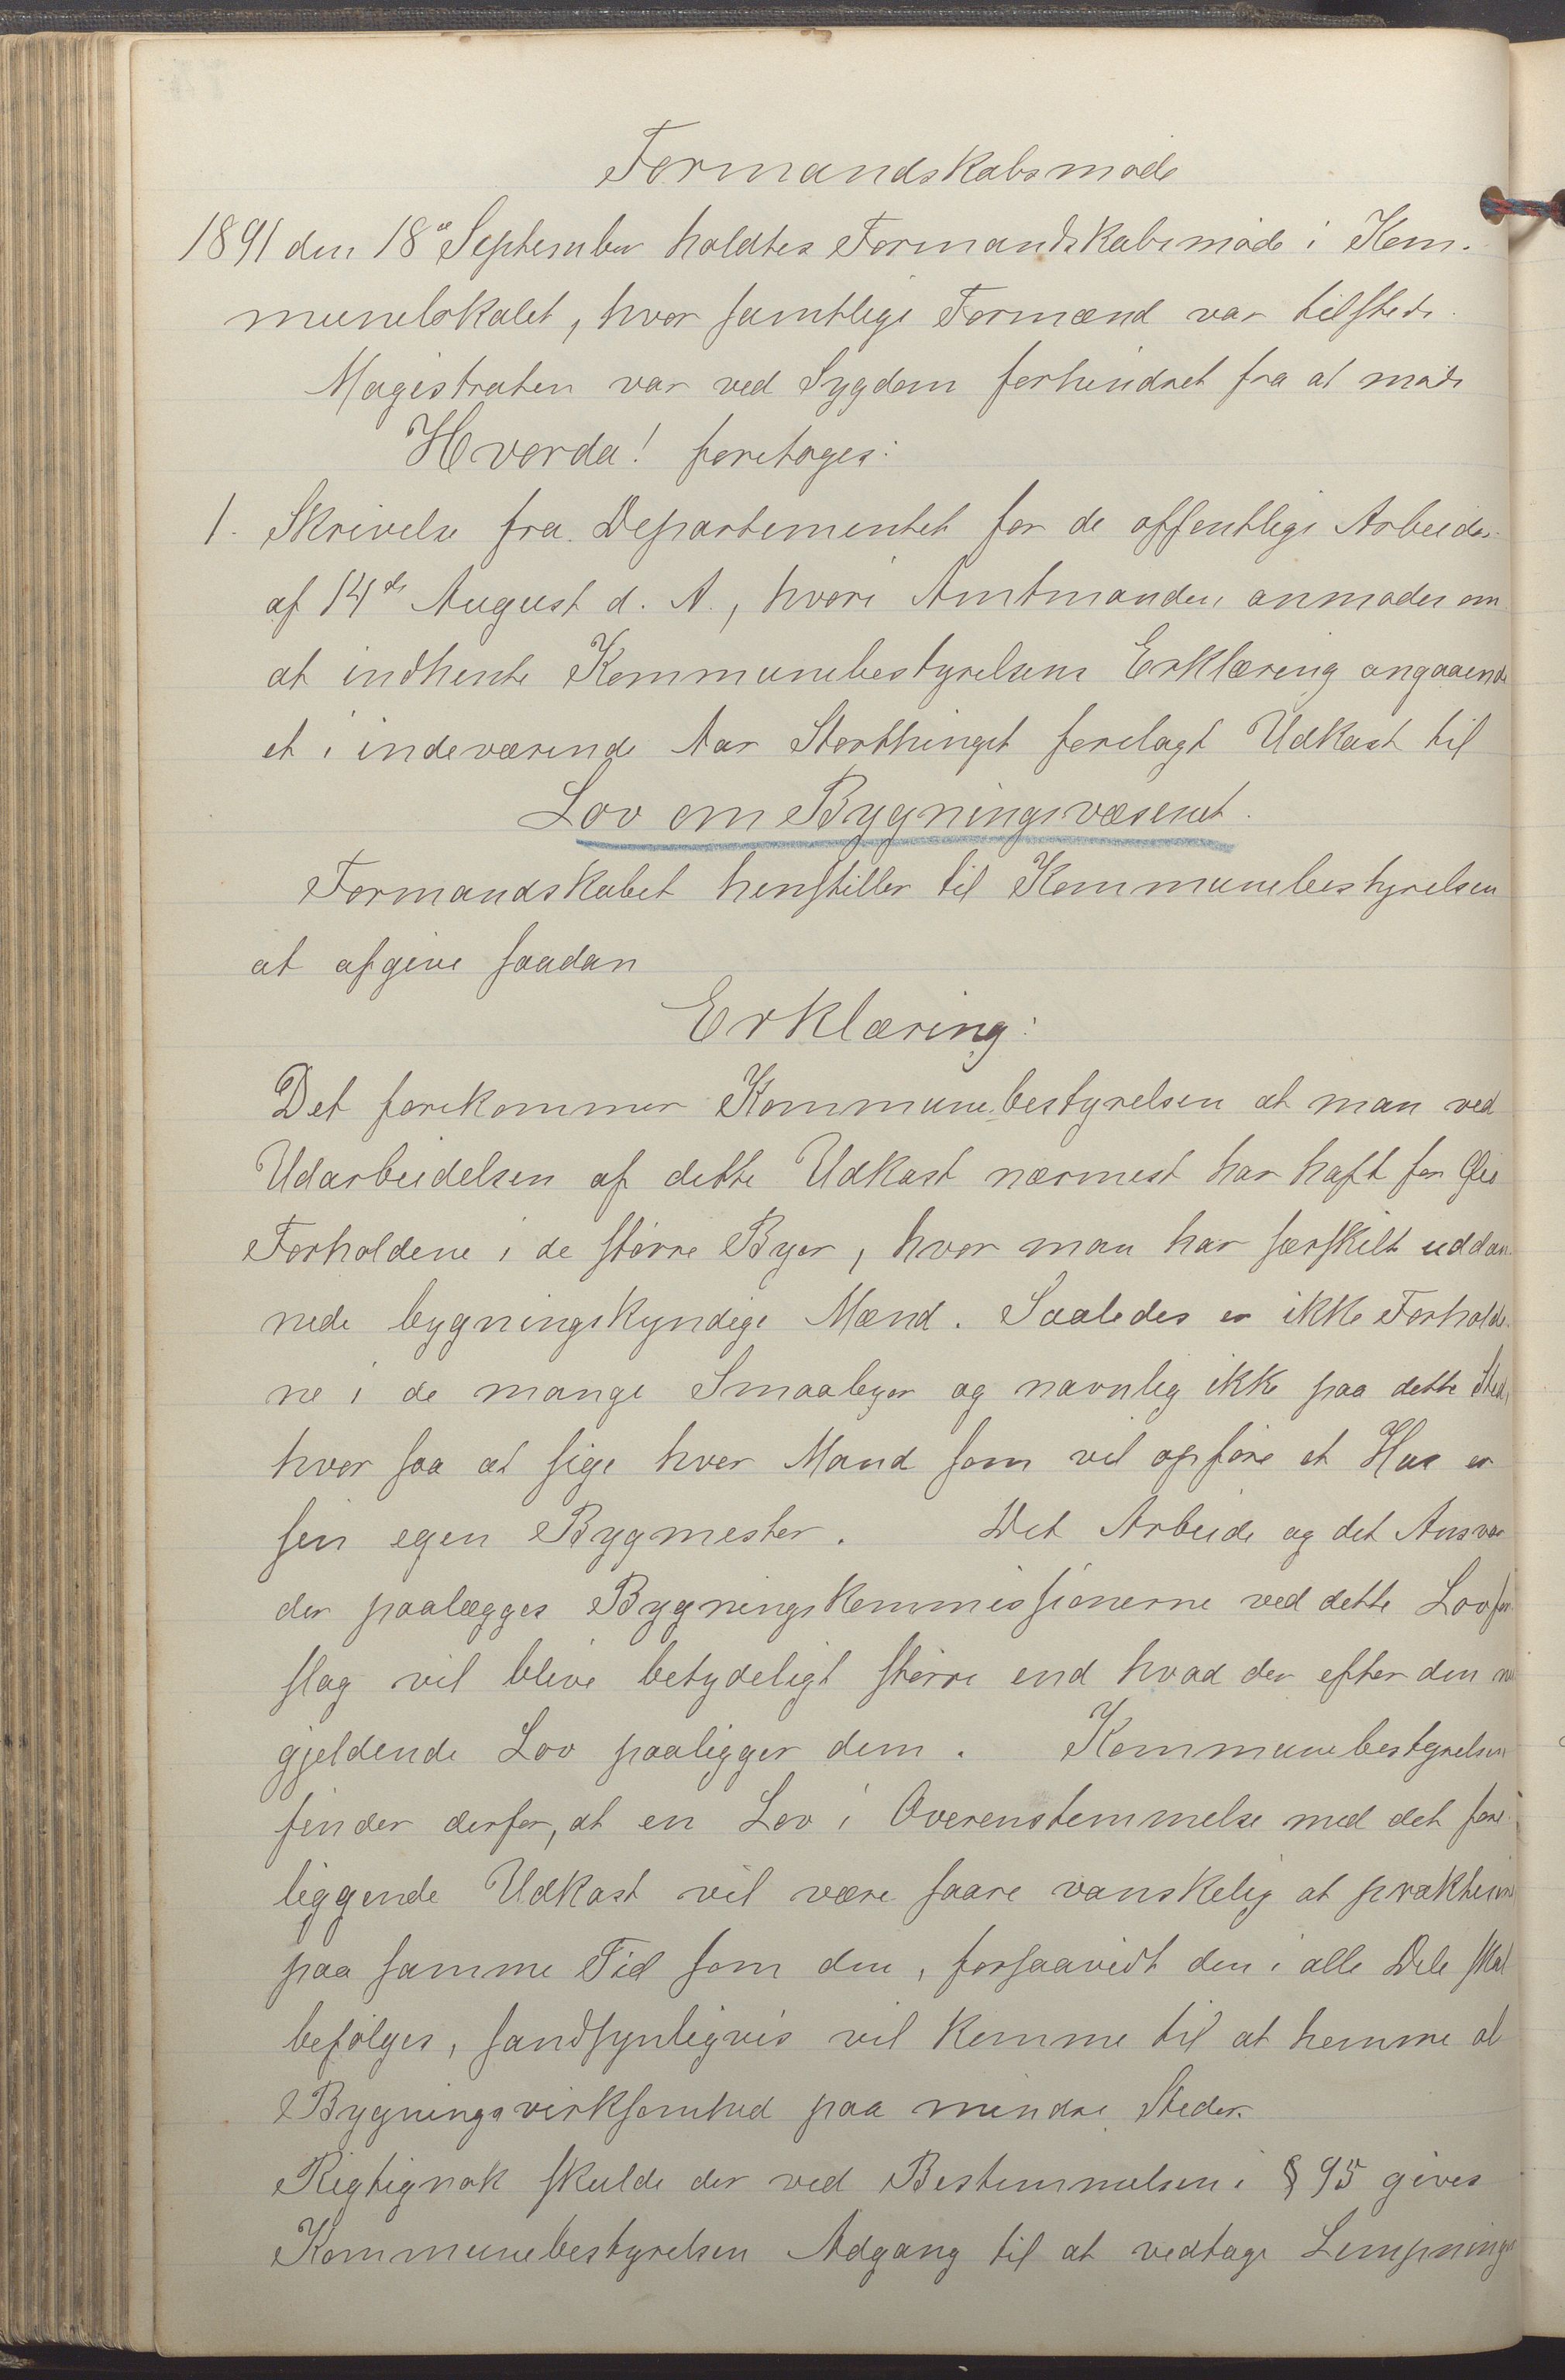 Formandskabsmøde
1891 den 18de September holdtes Formandskabsmøde i Kom-
munelokalet, hvor samtlige Formænd var tilstede.
Magistraten var ved Sygdom forhindret fra at møde
Hvorda! foretoges:
1. Skrivelse fra Departementet for de offentlige Arbeider
af 14de August d. A., hvori Amtmanden anmodes om
at indhente Kommunebestyrelsens Erklæring angaaende
et i indeværende Aar Storthinget forelagt Udkast til
Lov om Bygningsvæsenet.
Formandskabet henstiller til Kommunebestyrelsen
at afgive saadan
Erklæring:
Det forekommer Kommunebestyrelsen at man ved
Udarbeidelsen af dette Udkast nærmest har haft for Øie
Forholdene i de større Byer, hvor man har særskilt uddan-
nede bygningskyndige Mænd. Saaledes er ikke Forholde-
ne i de mange Smaabyer og navnlig ikke paa dette Sted,
hvor saa at sige hver Mand som vil opføre et Hus er
sin egen Bygmester. Det Arbeide og det Ansvar
der paalægges Bygningskommissionerne ved dette Lovfor-
slag vil blive betydeligt større end hvad der efter den nu
gjeldende Lov paaligger dem. Kommunebestyrelsen
finder derfor, at en Lov i Overenstemmelse med det fore-
liggende Udkast vil være saare vanskelig at praktisere
paa samme Tid som den, forsaavidt den i alle Dele skal
befølges, sandsynligvis vil komme til at hemme al
Bygningsvirksomhed paa mindre Steder.
Rigtignok skulde der ved Bestemmelsen i § 95 gives
Kommunebestyrelsen Adgang til at vedtage Lempninger